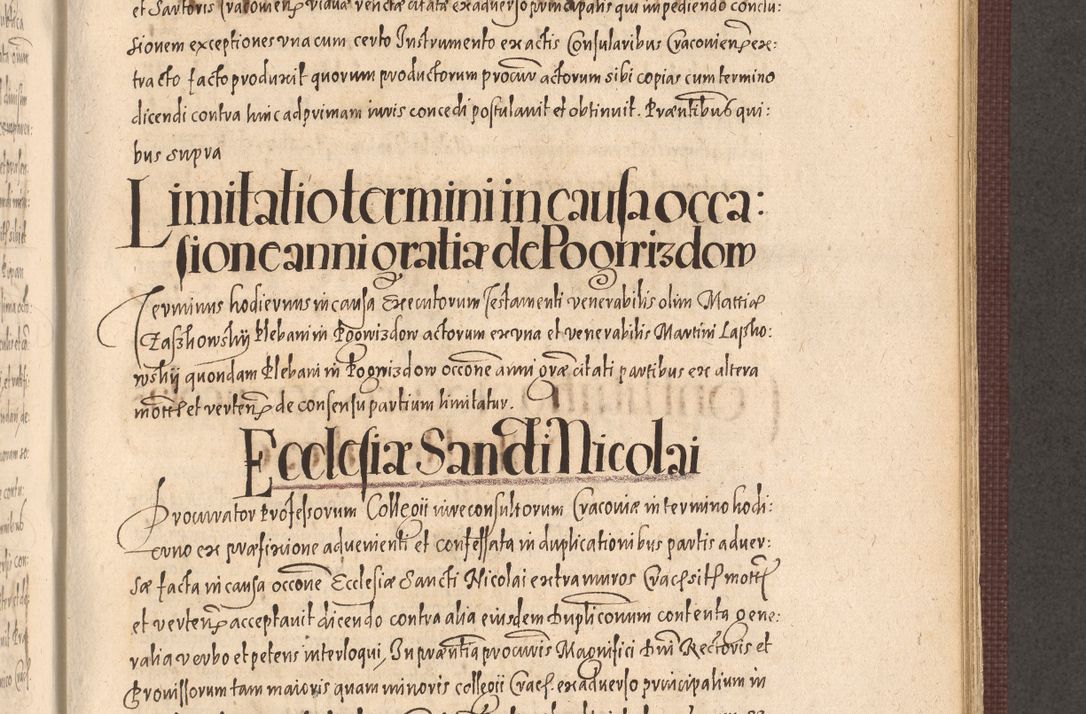 et Sartoris Cracovien viduæ venctæ citatæ ex adverso principalis qui impediendo conclu:
sionem exceptiones una cum certo Instrumento ex actis Consularibus Cracovien ex:
tracto facto produxit quorum productorum procur actorum sibi copias cum termino
dicendi contra hinc ad primam iuris concedi postulavit et obtinuit. Præntibus qui:
bus supra
Limitatio termini in causa occa:
sione anni gratiæ de Pogwizdow
Terminus hodiernus in causa Executorum Testamenti venerabilis olim Mattiæ
Czaszkowskij Plebani in Pogwizdow actorum ex una et venerabilis Martini Lasko:
wskij quondam Plebani in Pogwizdow occone anni græ citati partibus ex altera
mott et verten de consensu partium limitatur.
Ecclesiæ Sancti Nicolai
Procurator Professorum Collegii iureconsultorum Cracoviæ in termino hodi:
erno ex præfixione advenienti et confessata in duplicationibus partis adver:
sæ facta in causa occone Ecclesiæ Sancti Nicolai extra muros Crac sit mott
et verten acceptavit dicendo contra alia eiusdem Dupliconum contenta gene:
ralia verbo et petens interloqui, In præntia procuris Magnifici Dni Rectoris et
Provissorum tam maioris quam minoris collegii Crac. ex adverso principalium in